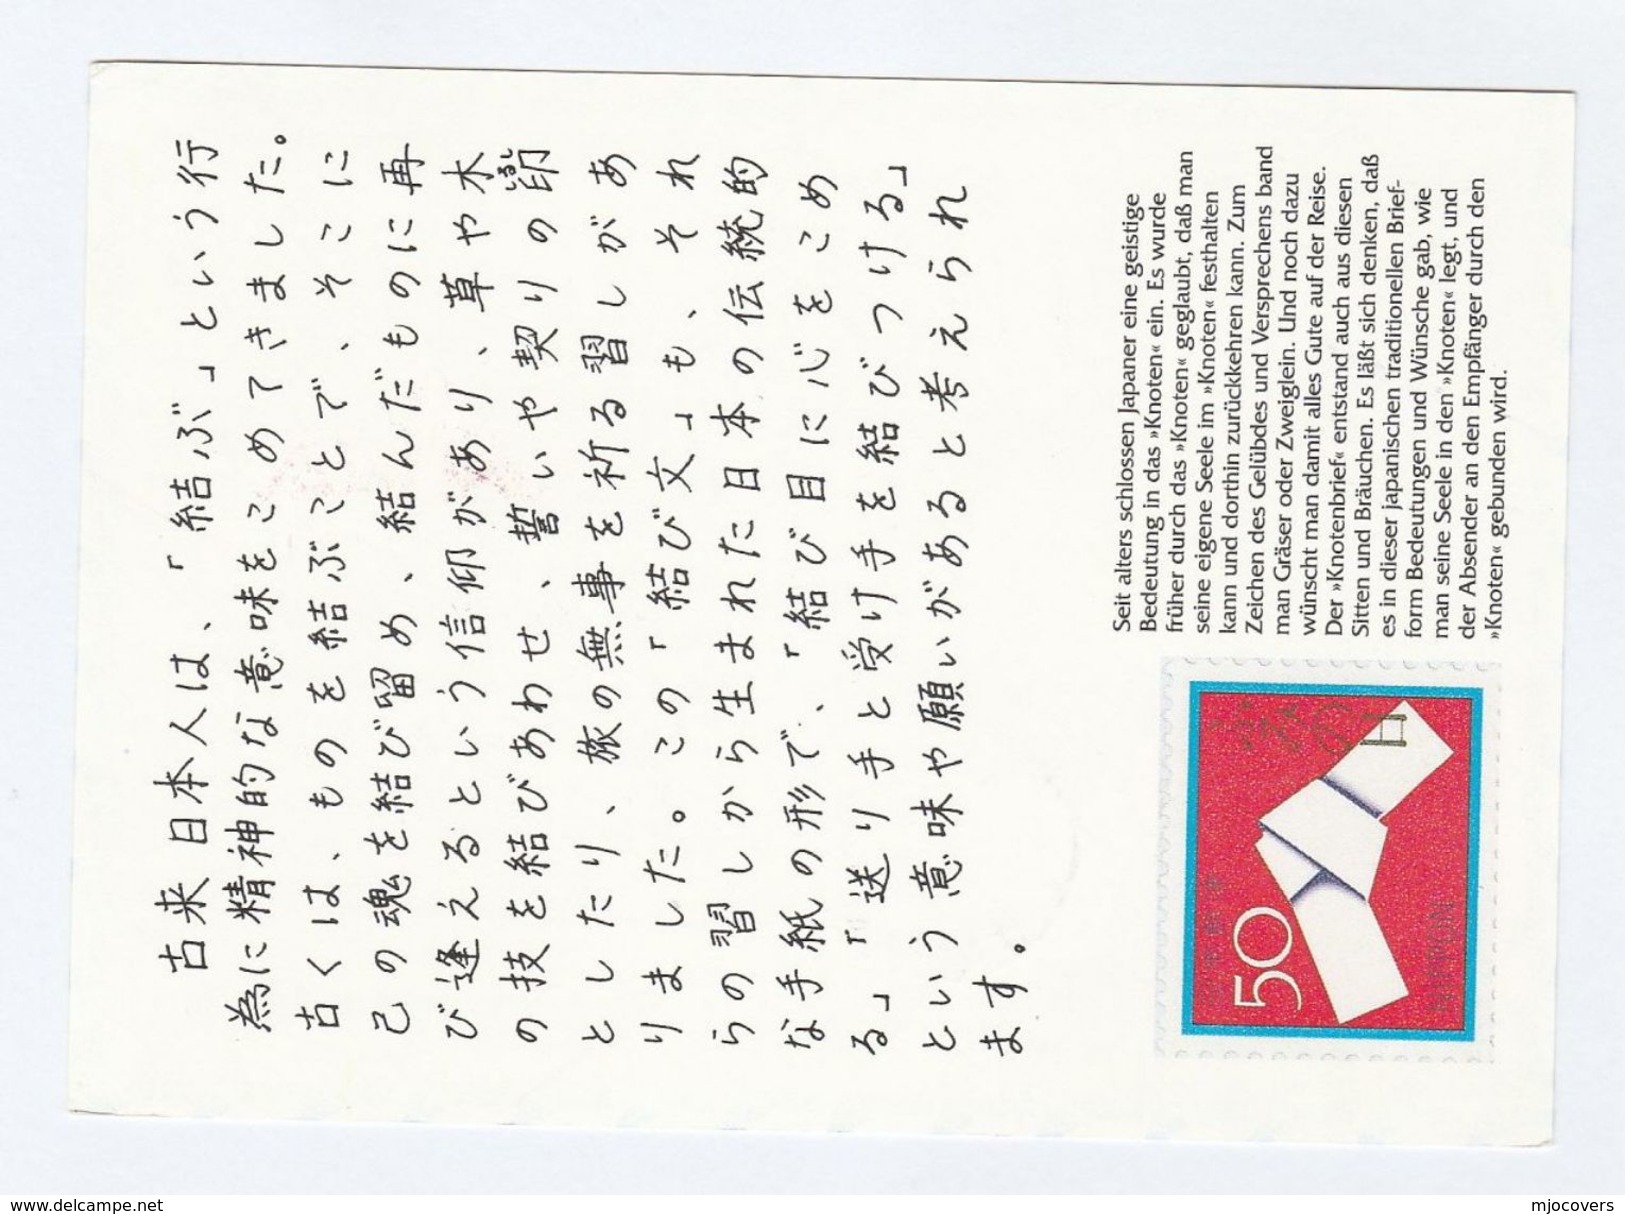 古来日本人は、「結ぶ」という行
為に精神的な意味をこめてきました。
古くは、ものを結ぶことで、そこに
己の魂を結び留め、結んだものに再
び逢えるという信仰があり、草や木
の技を結びあわせ、誓いや契りの印
しるし
としたり、旅の無事を祈る習しがあ
りました。この「結び文」も、それ
らの習しから生まれた日本の伝統的
な手紙の形で、「結び目に心をこめ
る」「送り手と受け手を結びつける」
という意味や願いがあると考えられ
ます。
Seit alters schlossen Japaner eine geistige
Bedeutung in das »Knoten« ein. Es wurde
früher durch das »Knoten« geglaubt, daß man
seine eigene Seele im »Knoten« festhalten
kann und dorthin zurückkehren kann. Zum
Zeichen des Gelübdes und Versprechens band
man Gräser oder Zweiglein. Und noch dazu
wünscht man damit alles Gute auf der Reise.
Der »Knotenbrief« entstand auch aus diesen
Sitten und Bräuchen. Es läßt sich denken, daß
es in dieser japanischen traditionellen Brief-
form Bedeutungen und Wünsche gab, wie
man seine Seele in den »Knoten« legt, und
der Absender an den Empfänger durch den
»Knoten« gebunden wird.
50
ふみの日
NIPPON
mjocovers